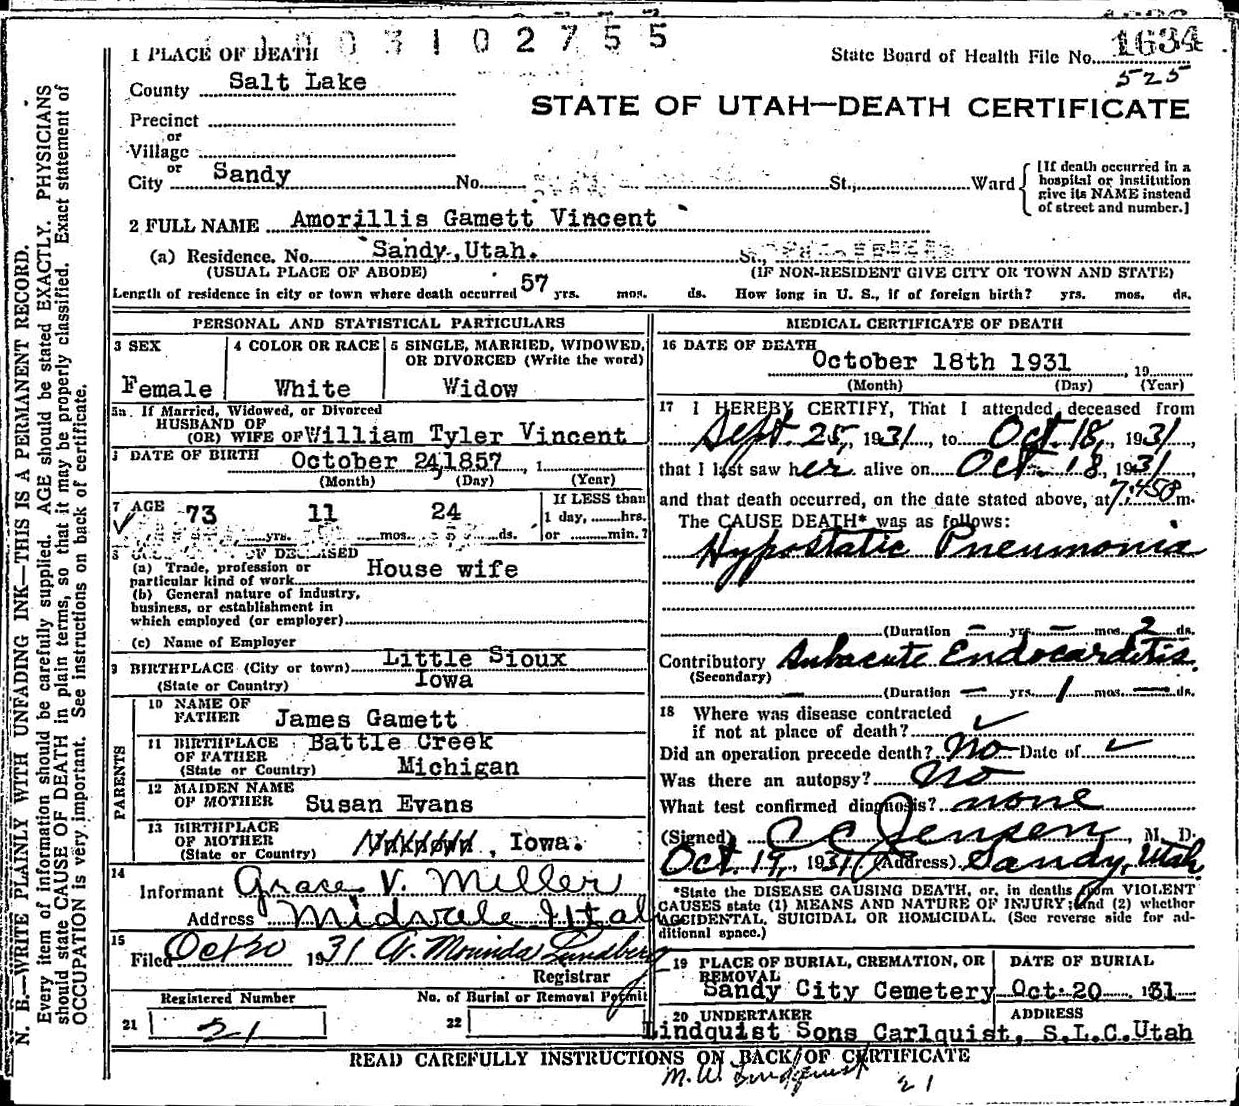 3 1 0 2 7 5 5
1 PLACE OF DEATH
State Board of Health File No. 1634
525
County Salt Lake
STATE OF UTAH—DEATH CERTIFICATE
Precinct
or
Village
or
City Sandy No. St., Ward
[If death occurred in a hospital or institution give its NAME instead of street and number.]
2 FULL NAME Amorillis Gamett Vincent
(a) Residence. No. Sandy, Utah. St.,
(USUAL PLACE OF ABODE) (IF NON-RESIDENT GIVE CITY OR TOWN AND STATE)
Length of residence in city or town where death occurred 57 yrs. mos. ds. How long in U. S., if of foreign birth? yrs. mos. ds.
PERSONAL AND STATISTICAL PARTICULARS
3 SEX
Female
4 COLOR OR RACE
White
5 SINGLE, MARRIED, WIDOWED,
OR DIVORCED (Write the word)
Widow
5a. If Married, Widowed, or Divorced
HUSBAND OF
(OR) WIFE OF William Tyler Vincent
DATE OF BIRTH October 24, 1857, 1
(Month) (Day) (Year)
7 AGE 73 yrs. 11 mos. 24 ds.
If LESS than
1 day, hrs.
or min.?
8
OF DECEASED
(a) Trade, profession or
particular kind of work House wife
(b) General nature of industry,
business, or establishment in
which employed (or employer)
(c) Name of Employer
9 BIRTHPLACE (City or town) Little Sioux
(State or Country) Iowa
PARENTS
10 NAME OF
FATHER James Gamett
11 BIRTHPLACE Battle Creek
OF FATHER
(State or Country) Michigan
12 MAIDEN NAME
OF MOTHER Susan Evans
13 BIRTHPLACE
OF MOTHER
(State or Country) , Iowa.
14
Informant Grace V. Miller
Address Midvale Utah
15
Filed Oct 20 1931
Registrar
Registered Number
No. of Burial or Removal Permit
21 21
22
MEDICAL CERTIFICATE OF DEATH
16 DATE OF DEATH
October 18th 1931, 19
(Month) (Day) (Year)
17 I HEREBY CERTIFY, That I attended deceased from
Sept. 25, 1931, to Oct. 18, 1931,
that I last saw her alive on Oct. 18, 1931,
and that death occurred, on the date stated above, at 7:45 m.
The CAUSE DEATH* was as follows:
Hypostatic Pneumonia
(Duration — yrs. — mos. 2 ds.
Contributory Subacute Endocarditis
(Secondary)
(Duration — yrs. 1 mos. — ds.
18 Where was disease contracted
if not at place of death? ✓
Did an operation precede death? No Date of ✓
Was there an autopsy? No
What test confirmed diagnosis? none
(Signed) C C Jensen, M. D.
Oct. 19, 1931 (Address) Sandy, Utah
*State the DISEASE CAUSING DEATH, or, in deaths from VIOLENT
CAUSES state (1) MEANS AND NATURE OF INJURY; and (2) whether
ACCIDENTAL, SUICIDAL OR HOMICIDAL. (See reverse side for ad-
ditional space.)
19 PLACE OF BURIAL, CREMATION, OR
REMOVAL
Sandy City Cemetery
DATE OF BURIAL
Oct. 20 1931
20 UNDERTAKER
Lindquist Sons Carlquist,
ADDRESS
S.L.C. Utah
READ CAREFULLY INSTRUCTIONS ON BACK OF CERTIFICATE
M. W. Lindquist
21
N. B.—WRITE PLAINLY WITH UNFADING INK—THIS IS A PERMANENT RECORD.
Every item of information should be carefully supplied. AGE should be stated EXACTLY. PHYSICIANS
should state CAUSE OF DEATH in plain terms, so that it may be properly classified. Exact statement of
OCCUPATION is very important. See instructions on back of certificate.